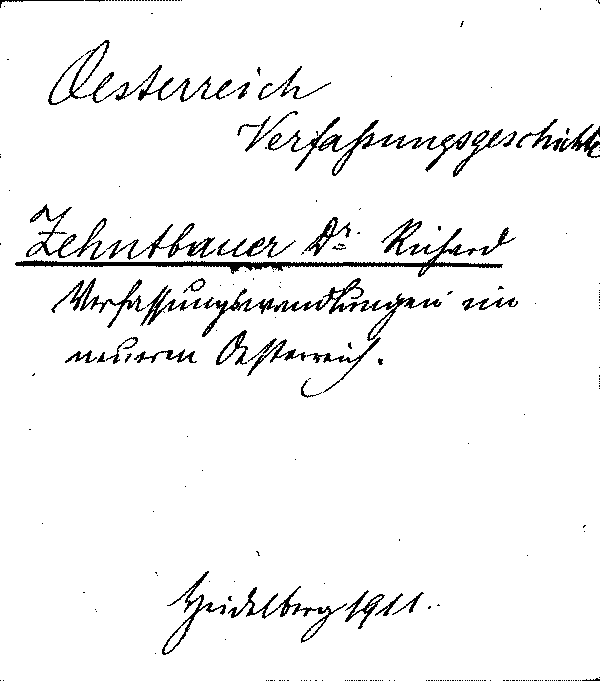 Oesterreich
Verfaßungsgeschichte
Zehntbauer Dr. Richard
Verfassungswandlungen im
neueren Oesterreich.
Heidelberg 1911.